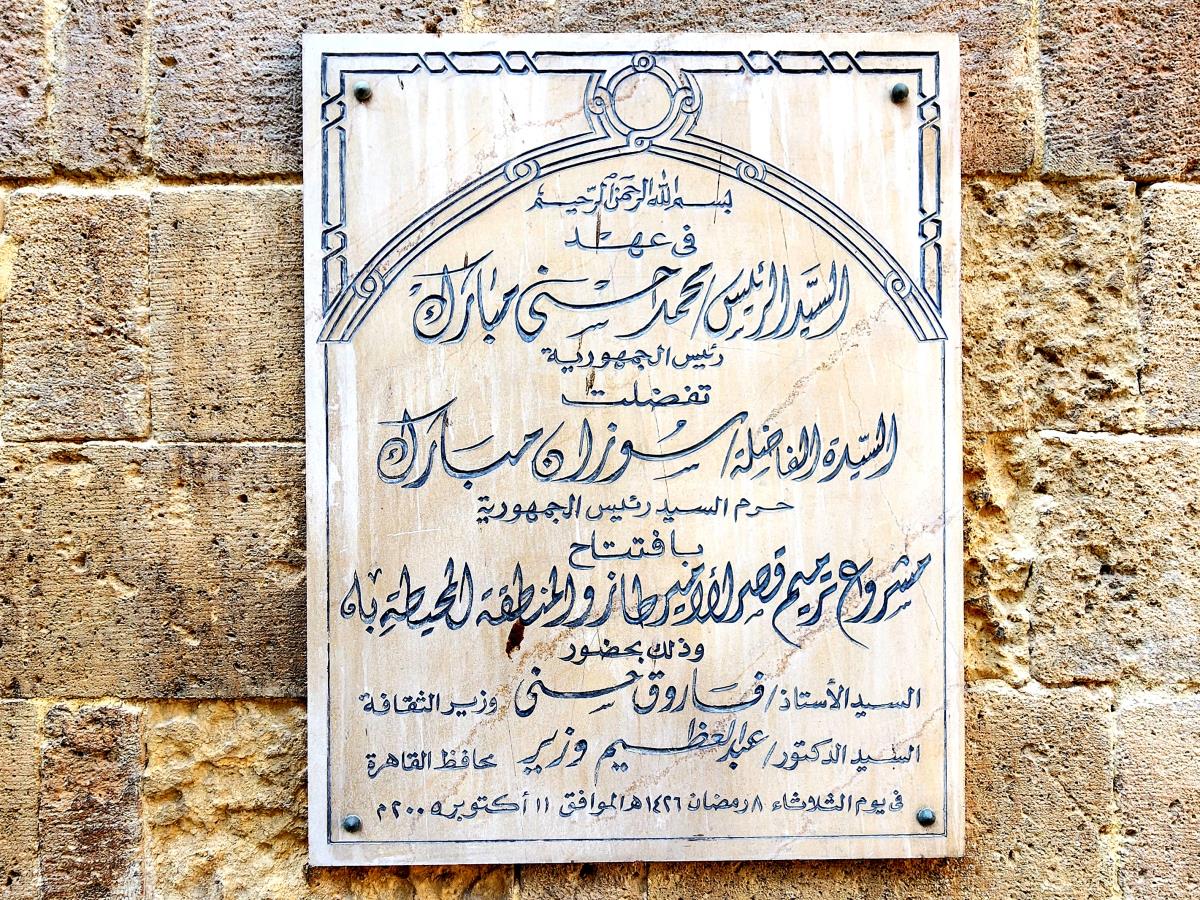 بسم الله الرحمن الرحيم
فى عهد
السيد الرئيس/ محمد حسنى مبارك
رئيس الجمهورية
تفضلت
السيدة الفاضلة/ سوزان مبارك
حرم السيد رئيس الجمهورية
بافتتاح
مشروع ترميم قصر الأمير طاز والمنطقة المحيطة به
وذلك بحضور
السيد الأستاذ/ فاروق حسنى وزير الثقافة
السيد الدكتور/ عبدالعظيم وزير محافظ القاهرة
فى يوم الثلاثاء ٨ رمضان ١٤٢٦هـ الموافق ١١ أكتوبر ٢٠٠٥م